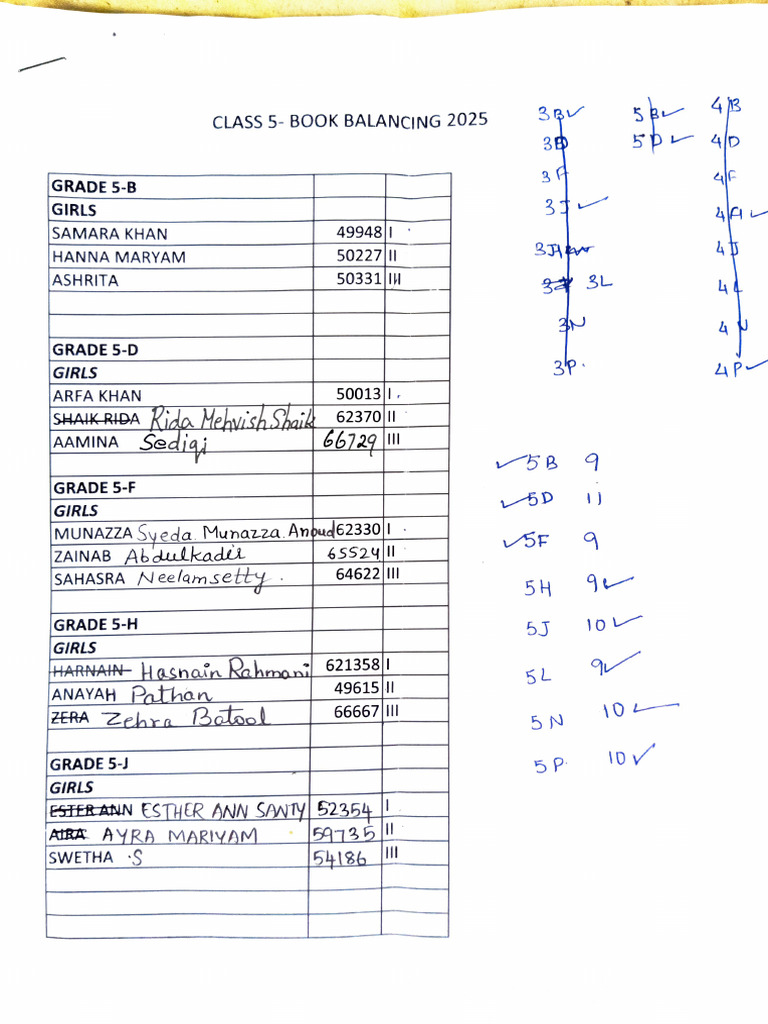 CLASS 5- BOOK BALANCING 2025
GRADE 5-B
GIRLS
SAMARA KHAN 49948 I
HANNA MARYAM 50227 II
ASHRITA 50331 III
GRADE 5-D
GIRLS
ARFA KHAN 50013 I
SHAIK RIDA Rida Mehvish Shaik 62370 II
AAMINA Sediqi 66729 III
GRADE 5-F
GIRLS
MUNAZZA Syeda Munazza Anoud 62330 I
ZAINAB Abdulkadir 65524 II
SAHASRA Neelamsetty 64622 III
GRADE 5-H
GIRLS
HARNAIN Hasnain Rahmani 621358 I
ANAYAH Pathan 49615 II
ZERA Zehra Batool 66667 III
GRADE 5-J
GIRLS
ESTER ANN ESTHER ANN SANTY 52354 I
AIRA AYRA MARIYAM 59735 II
SWETHA S 54186 III
3B ✓ 5B ✓ 4B
3D 5D ✓ 4D
3F 4F
3J ✓ 4H ✓
3H 4J
3L 4L
3N 4N
3P 4P ✓
✓ 5B 9
✓ 5D 11
✓ 5F 9
5H 9 ✓
5J 10 ✓
5L 9 ✓
5N 10 ✓
5P 10 ✓